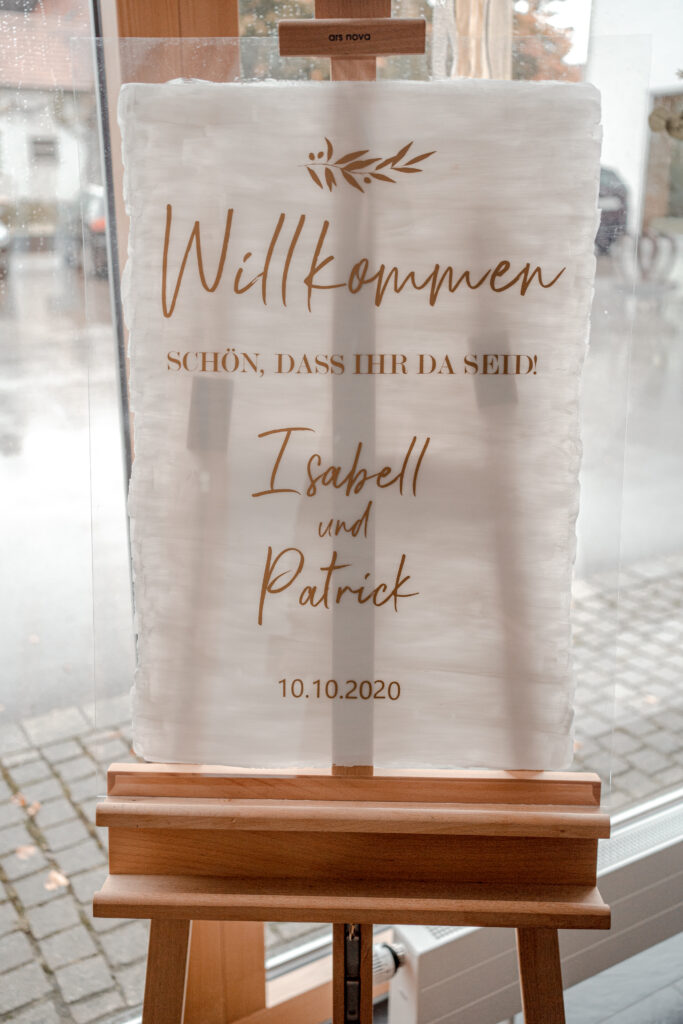 ars nova
Willkommen
SCHÖN, DASS IHR DA SEID!
Isabell
und
Patrick
10.10.2020